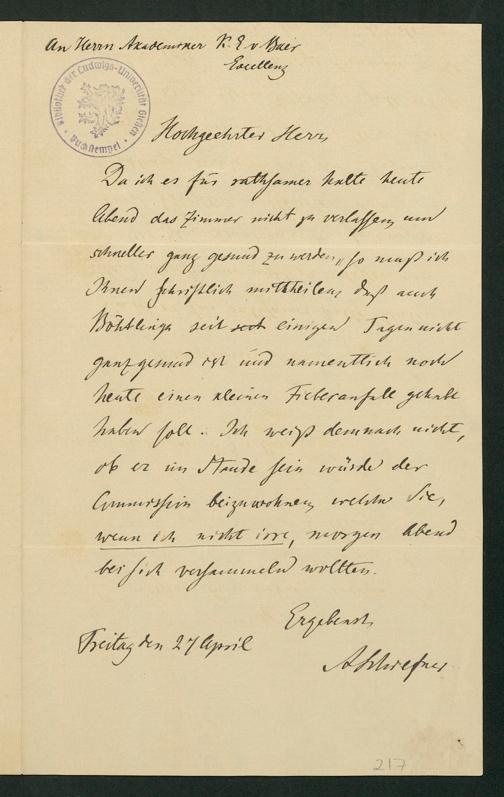 An Herrn Akademiker K. E. v Baer
Excellenz
Bibliothek der Ludwigs-Universität Gießen
Buchstempel
Hochgeehrter Herr,
Da ich es für rathsamer halte heute
Abend das Zimmer nicht zu verlassen, um
schneller ganz gesund zu werden, so muß ich
Ihnen schriftlich mittheilen, daß auch
Böhtlingk seit einigen Tagen nicht
ganz gesund ist und namentlich noch
heute einen kleinen Fieberanfall gehabt
haben soll. Ich weiß demnach nicht,
ob er im Stande sein würde der
Commission beizuwohnen, welche Sie,
wenn ich nicht irre, morgen Abend
bei sich versammeln wollten.
Ergebenst
Freitag den 27 April
ASchiefner
217